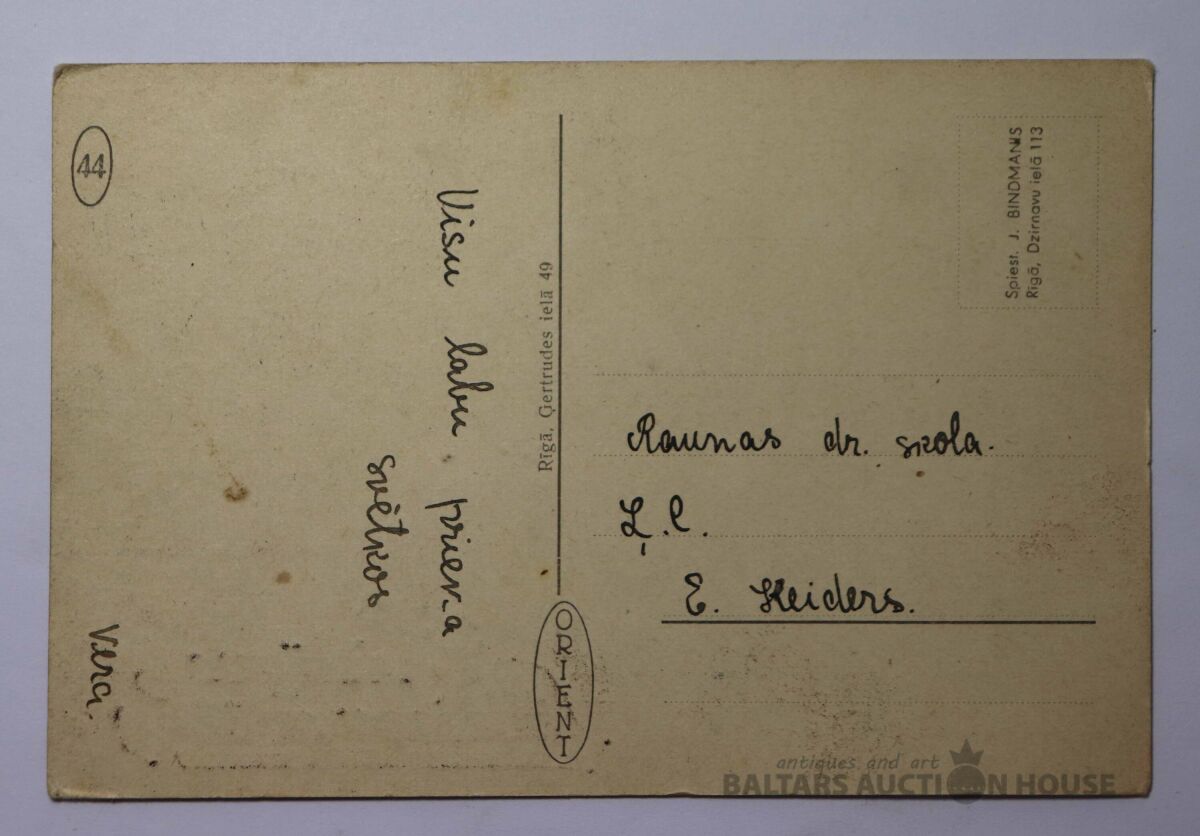 44
Visu labu prieka
svētkos
Vera.
Rīgā, Ģertrudes ielā 49
ORIENT
Spiest. J. BINDMANIS
Rīgā, Dzirnavu ielā 113
Raunas dr. skola.
Ļ. C.
E. Skeiders.
antiques and art
BALTARS AUCTION HOUSE